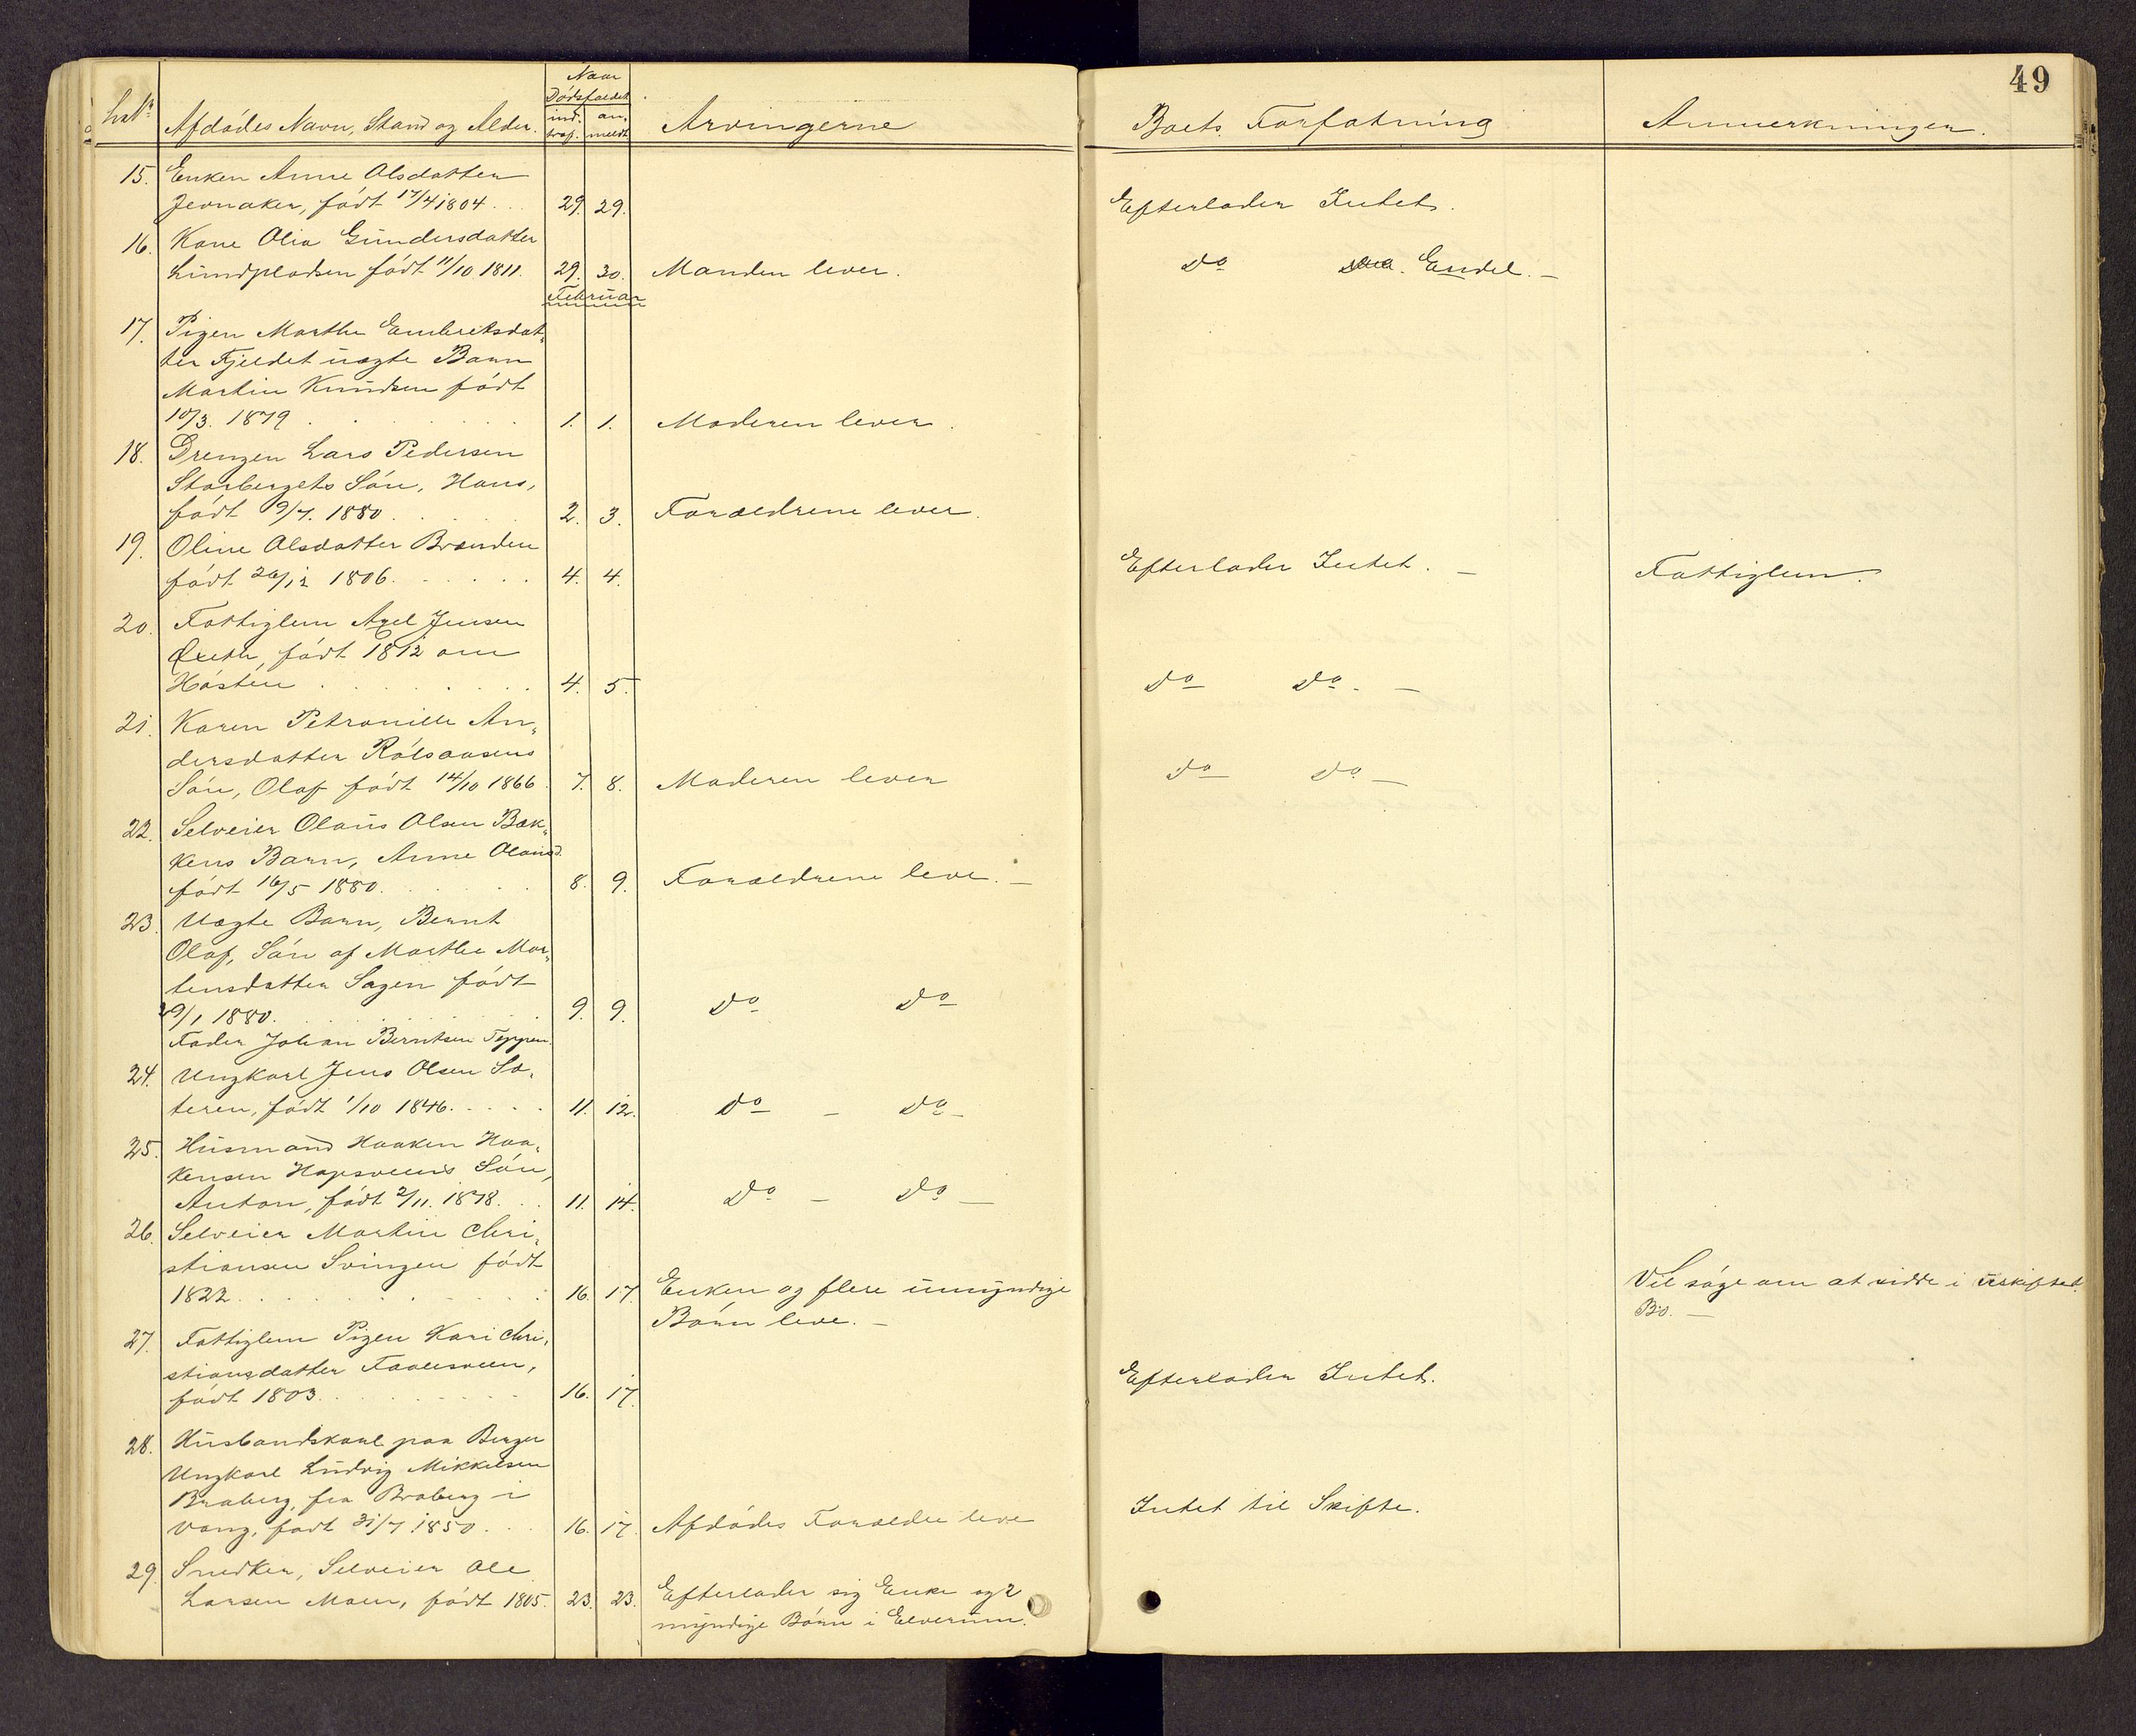 49
Naar
Dødsfaldet
LøbNr. Afdødes Navn, Stand og Alder. indtraf. anmeldt Arvingerne Boets Forfatning Anmerkninger.
15. Enken Anne Olsdatter
Jevnaker, født 17/4 1804 . . . 29. 29. Efterlader Intet.
16. Kone Olia Gundersdatter
Lundpladsen født 11/10. 1811. 29. 30. Manden lever. Do Endel. —
Februar
17. Pigen Marthe Embretsdat„
ter Fjeldet uægte Barn
Martin Knudsen født
10/3. 1879 . . . 1. 1. Moderen lever.
18. Drengen Lars Pedersen
Storbergets Søn, Hans,
født 9/7. 1880 . . . 2. 3. Forældrene lever.
19. Oline Olsdatter Brænden
født 26/12 1806. . . . 4. 4. Efterlader Intet. — Fattiglem.
20. Fattiglem Axel Jensen
født 1812 om
Høsten . . . 4. 5. Do Do. —
21. Karen Petronille An„
dersdatter Rølsaasens
Søn, Olaf født 14/10 1866 7. 8. Moderen lever Do Do —
22. Selveier Olaus Olsen Bæk„
kens Barn, Anne Olausd.
født 16/5 1880. . . . 8. 9. Forældrene leve. —
23. Uægte Barn, Bernt
Olaf, Søn af Marthe Mor„
tensdatter Sagen født
29/1 1880. . . . 9. 9. Do Do
Fader Johan Berntsen Teppen.
24. Ungkarl Jens Olsen Sæ„
teren, født 1/10 1846. . . . 11. 12. Do — Do —
25. Husmand Haaken Haa„
kensen Hapsveens Søn,
Anton, født 2/11. 1878. . . 11. 14. Do — Do —
26. Selveier Martin Chri„
stiansen Svingen født
1822 . . . 16. 17. Enken og flere umyndige Vil søge om at sidde i uskiftet
Børn leve. — Bo. —
27. Fattiglem Pigen Kari Chri„
stiansdatter
født 1803. . . . 16. 17. Efterlader Intet.
28. Husbandskarl paa Berger
Ungkarl Ludvig Mikkelsen
Braberg, fra Braberg i
Vang, født 31/7 1850 . . . 16. 17. Afdødes Forældre leve Intet til Skifte.
29. Snedker, Selveier Ole
Larsen Moen, født 1805. 23. 23. Efterlader sig Enke og 2
myndige Børn i Elverum.